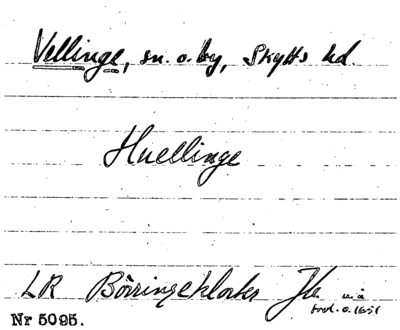 Vellinge, sn. o. by, Skytts hd.
Huellinge
LR Börringekloster Jb
Nr 5095.